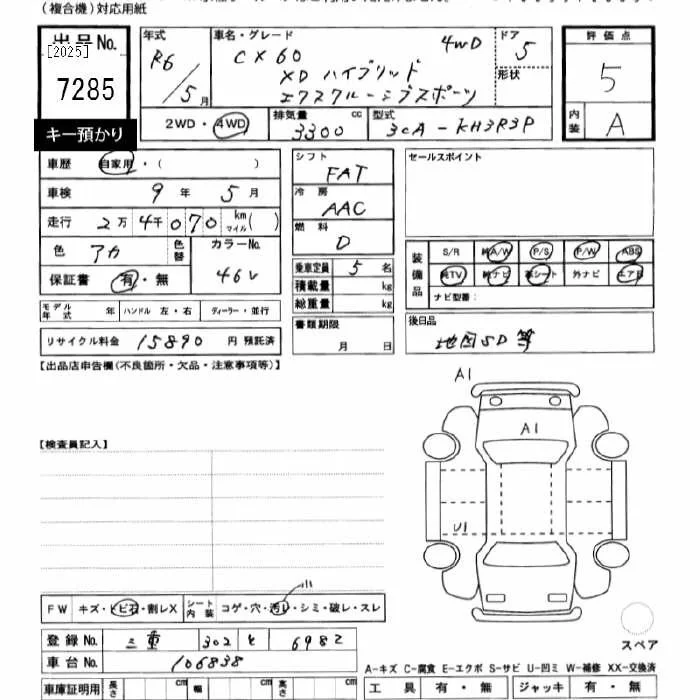 (複合機)対応用紙
出品No.
[2025]
7285
キー預かり
年式
R6/5月
車名・グレード
CX60 4WD
XDハイブリッド
エクスクルーシブスポーツ
ドア
5
形状
評価点
5
内装
A
2WD・4WD
排気量
3300 cc
型式
3CA-KH3R3P
車歴 自家用・( )
車検 9年 5月
走行 2万4千070 km マイル( )
色 アカ
色替
カラーNo.
46V
保証書 有・無
モデル年式 年 ハンドル 左・右 ディーラー・並行
リサイクル料金 15890 円 預託済
シフト
FAT
冷房
AAC
燃料
D
乗車定員 5 名
積載量 kg
総重量 kg
書類期限
月 日
セールスポイント
装備品
S/R 純A/W P/S P/W ABS
純TV 純ナビ 革シート 外ナビ エアB
ナビ型番:
後日品
地図SD等
【出品店申告欄(不良箇所・欠品・注意事項等)】
【検査員記入】
A1
A1
U1
FW キズ・ヒビ石・割レX シート内装 コゲ・穴・汚レ・シミ・破レ・スレ
登録No. 三重 302 6982
車台No. 106838
車庫証明用 長さ cm 幅 cm 高さ cm
スペア
A-キズ C-腐食 E-エクボ S-サビ U-凹ミ W-補修 XX-交換済
工具 有・無 ジャッキ 有・無